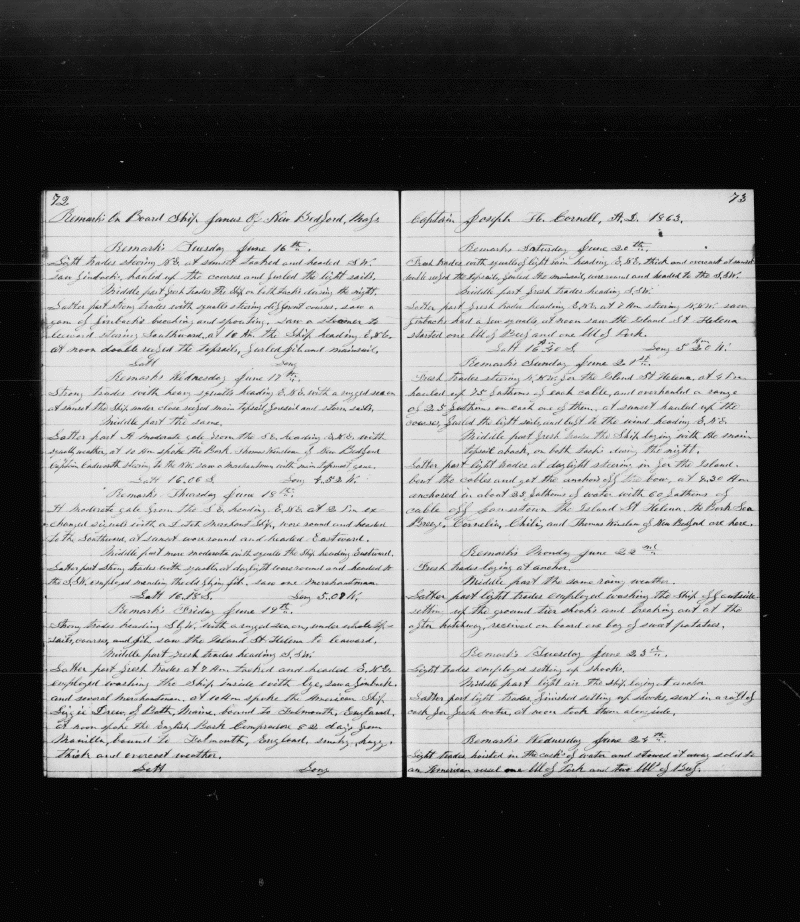 72
Remarks On Board Ship Janus Of New Bedford, Mass
Remarks Tuesday June 16th.
Light trades steering N.E. at sunset tacked and headed S.W.
saw finbacks, hauled up the courses and furled the light sails.
Middle part fresh trades the Ship on both tacks during the night.
Latter part strong trades with squalls steering different courses, saw a
gam of finbacks breaching and spouting. saw a steamer to
leeward steering Southward, at 10 Am the Ship heading E.N.E.
at noon double reefed the topsails, furled jib and mainsail.
Latt Long
Remarks Wednesday June 17th.
Strong trades with heavy squalls heading E.N.E. with a rugged sea on
at sunset the Ship under close reefed main topsail, foresail and storm sails,
Middle part the same.
Latter part A moderate gale from the S.E. heading E.N.E. with
squally weather, at 10 Am spoke the Bark Thomas Winslow of New Bedford
Captain steering to the NW. saw a merchantman with main topmast gone.
Latt 16.06 S. Long 4.52 W.
Remarks Thursday June 18th.
A moderate gale from the S.E. heading E.N.E. at 2 Pm ex
changed signals with a Merchant Ship, wore round and headed
to the Southward, at sunset wore round and headed Eastward.
Middle part more moderate with squalls the Ship heading Eastward.
Latter part Strong trades with squalls at daylight wore round and headed to
the S.SW. employed mending the old jib. saw one merchantman.
Latt 16.18 S. Long 5.08 W.
Remarks Friday June 19th.
Strong trades heading S.W. with a rugged sea on, under whole top
sails, courses, and jib. saw the Island St Helena to leeward.
Middle part fresh trades heading S.SW.
Latter part fresh trades at 7 Am tacked and headed E.N.E.
employed washing the Ship inside with lye, saw a finback
and several merchantmen. at 10 Am spoke the American Ship
Drew of Bath, Maine, bound to Falmouth, England,
At noon spoke the English Bark Compromise 82 days from
Manilla, bound to Falmouth, England, smoky, foggy,
thick and overcast weather.
Latt Long
73
Captain Joseph H. Cornell, A.D. 1863.
Remarks Saturday June 20th.
Fresh trades with squalls of light rain heading E.N.E. thick and overcast at sunset
double reefed the topsails, furled the mainsail, wore round and headed to the S.SW.
Middle part fresh trades heading S.SW.
Latter part fresh trades heading E.N.E. at 7 Am steering N.NW. saw
finbacks had a few squalls, at noon saw the Island St Helena
started one bbl of Beef and one bbl of Pork.
Latt 16.30 S Long 5 20 W.
Remarks Sunday June 21st.
Fresh trades steering N.NW. for the Island St Helena, at 4 Pm
hauled up 75 fathoms of each cable, and overhauled a range
of 25 fathoms on each one of them, at sunset hauled up the
courses, furled the light sails, and luft to the wind heading E.N.E.
Middle part fresh trades the Ship laying with the main
topsail aback, on both tacks during the night.
Latter part light trades at daylight steering in for the Island.
bent the cables and got the anchors off the bow, at 9,30 Am
anchored in about 23 fathoms of water with 60 fathoms of
cable off Jamestown the Island St Helena, the Bark Sea
Breeze, Cornelia, Chili, and Thomas Winslow of New Bedford are here.
Remarks Monday June 22nd.
Fresh trades laying at anchor.
Middle part the same rainy weather.
Latter part light trades employed washing the Ship off outside,
setting up the ground tier shooks and breaking out at the
after hatchway, received on board one bag of sweet potatoes.
Remarks Tuesday June 23rd.
Light trades employed setting up shooks.
Middle part light air the Ship laying at anchor
Latter part light trades finished setting up shooks, sent in a raft of
cask for fresh water, at noon took them along side.
Remarks Wednesday June 24th.
Light trades hoisted in the cask of water and stowed it away sold to
an American vessel one bbl of Pork and two bbls of Beef.